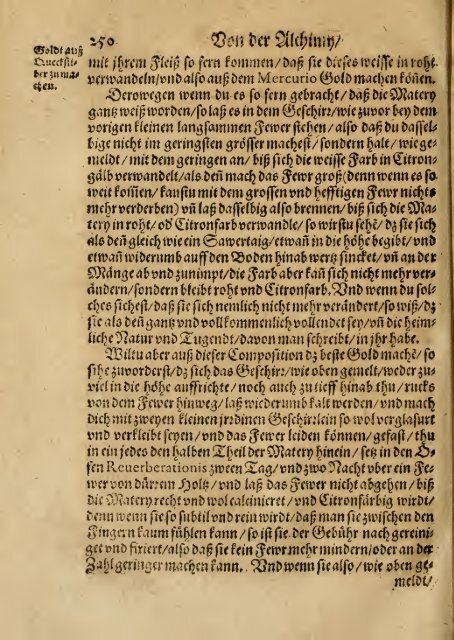 250 Von der Alchimy/
Goldt auß
Quecksil-
ber zu ma-
chen.
mit jhrem Fleiß so fern kommen/daß sie dieses weisse in roht
verwandeln/vnd also auß dem Mercurio Gold machen köñen.
Derowegen wenn du es so fern gebracht/daß die Matery
gantz weiß worden/so laß es in dem Geschirr/wie zuvor bey dem
vorigen kleinen langsammen Fewer stehen/also daß du dassel-
bige nicht im geringsten grösser machest/sondern halt/wie ge-
meldt/mit dem geringen an/biß sich die weisse Farb in Citron-
gälb verwandelt/als deñ mach das Fewr groß(denn wenn es so
weit koṁen/kanstu mit dem grossen vnd hefftigen Fewr nichts
mehr verderben) vñ laß dasselbig also brennen/biß sich die Ma-
tery in roht/od' Citronfarb verwandle/so wirstu sehē/dz sie sich
als deñ gleich wie ein Sawertaig/etwañ in die höhe begibt/vnd
etwañ widerumb auff den Boden hinabwerts sincket/vñ an der
Mänge ab vnd zunimpt/die Farb aber kañ sich nicht mehr ver-
ändern/sondern bleibt roht vnd Citronfarb. Vnd wenn du sol-
ches sichest/daß sie sich nemlich nicht mehr verändert/so wiß/dz
sie als den gantz vnd vollkommenlich vollendet sey/vñ die heim-
liche Natur vnd Tugendt/davon man schreibt/in jhr habe.
Wiltu aber auß dieser Composition dz beste Gold machē/so
sihe zuvorderst/dz sich das Geschirr/wie oben gemelt/weder zu-
viel in die höhe auffrichte/noch auch zu tieff hinab thu/rucks
von dem Fewer hinweg/laß widerumb kalt werden/vnd mach
dich mit zweyen kleinen jrrdinen Geschirrlein so wol verglasurt
vnd verkleibt seyen/vnd das Fewer leiden können/gefast/thu
in ein jedes den halben Theil der Matery hinein/setz in den O-
fen Reuerberationis zween Tag/vnd zwo Nacht vber ein Fe-
wer von dürrem Holtz/vnd laß das Fewer nicht abgehen/biß
die Matery recht vnd wol calcinieret/vnd Citronfärbig wirdt/
denn wenn sie so subtil vnd rein wirdt/daß man sie zwischen den
Fingern kaum fühlen kann/so ist sie der Gebühr nach gereini-
get vnd fixiert/also daß sie kein Fewr mehr mindern/oder an der
Zahl geringer machen kann. Vnd wenn sie also/wie oben ge-
meldt/